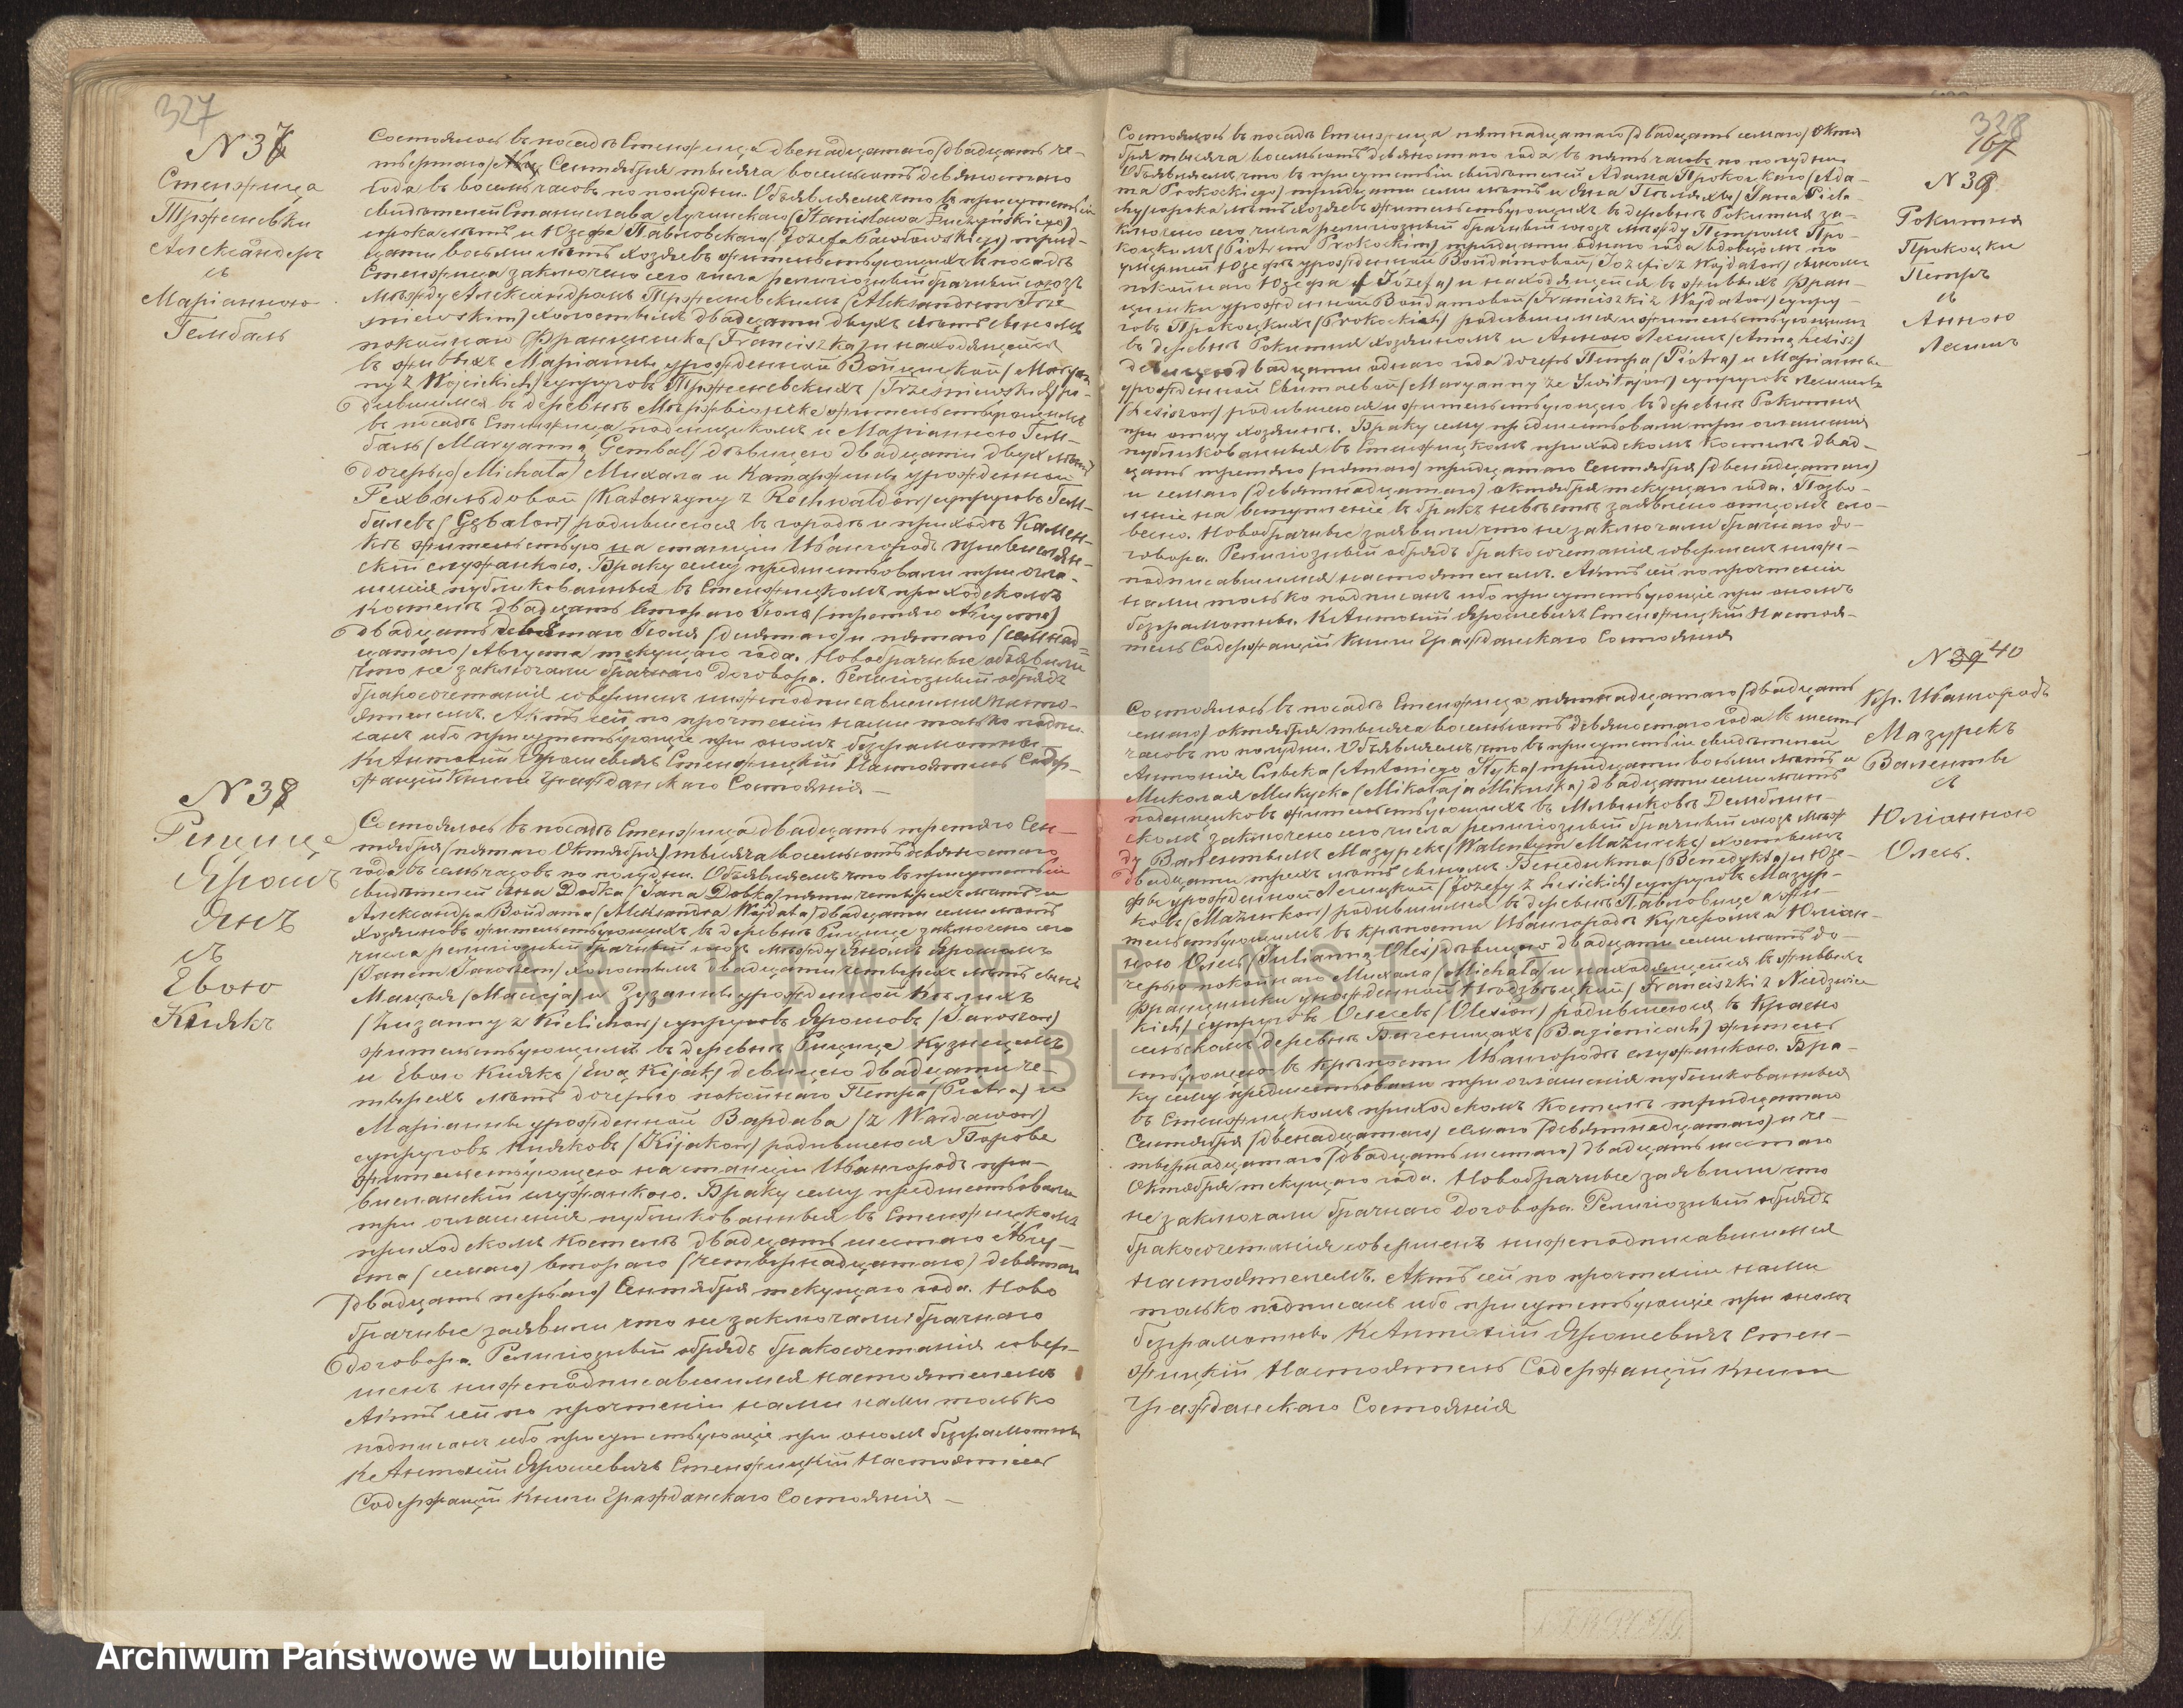 327
N 37
Стенжица
Тржсневски
Александеръ
съ
Маріанною
Гембаль
Состоялось въ посадѣ Стенжица двенадцатаго /двадцать че-
твертаго/ Сентября тысяча восемьсотъ девяностаго
года въ восемь часовъ по полудни. Объявляемъ что въ присутствіи
свидѣтелей Станислава Лучинскаго /Stanisława Łuczyńskiego/
сорока лѣтъ, и Юзефа Павловскаго /Józefa Pawłowskiego/ трид-
цати восьми лѣтъ хозяевъ жительствующихъ въ посадѣ
Стенжица заключено сего числа религіозный брачный союзъ
между Александромъ Тржесневскимъ /Aleksandrem Trze
śniewskim/ холостымъ двадцати двухъ лѣтъ сыномъ
покойнаго Францишка /Franciszka/ и находящейся
въ живыхъ Маріанны урожденной Войцицкой /Maryan
ny z Wójcickich/ супруговъ Тржесневскихъ /Trześniewskich/ ро-
дившимся въ деревнѣ жительствующимъ
въ посадѣ Стенжица поденщикомъ и Маріанною Гем-
баль /Maryanną Gembal/ дѣвицею двадцати двухъ лѣтъ
дочерью /Michała/ Михала и Катаржины урожденной
Рехвальдовой /Katarzyny z Rechwaldów/ супруговъ Гем-
балевъ /Gębalow/ родившеюся въ городѣ и приходѣ Камен-
кѣ жительствую на станціи Ивангородъ привислян-
скій служанкою. Браку сему предшествовали три огла-
шенія публикованныя въ Стенжицкомъ приходскомъ
костелѣ двадцать втораго Іюля /третьяго Августа/
двадцать девятаго Іюля /десятаго/ и пятаго /семнад-
цатаго/ Августа текущаго года. Новобрачные объявили
что не заключали брачнаго договора. Религіозный обрядъ
бракосочетанія совершенъ нижеподписавшимся насто-
ятелемъ. Актъ сей по прочтеніи нами только подпи-
санъ ибо присутствующіе при ономъ безграмотны.
К. Антоній Ярошевичъ Стенжицкій Настоятель Содер-
жащій Книги Гражданскаго Состоянія —
N 38
Рицице
Ярошъ
Янъ
съ
Евою
Киякъ
Состоялось въ посадѣ Стенжица двадцать третяго Сен-
тября /пятаго Октября/ тысяча восемьсотъ девяностаго
года въ семь часовъ по полудни. Объявляемъ что въ присутствіи
свидѣтелей Яна Добка /Jana Dobka/ четырехъ лѣтъ и
Александра Войдата /Aleksandra Wójdata/ двадцати семи лѣтъ
хозяиновъ жительствующихъ въ деревнѣ Рицице заключено сего
числа религіозный брачный союзъ между Яномъ Ярошомъ
/Janem Jaroszem/ холостымъ двадцати четырехъ лѣтъ сынъ
Мацѣя /Macieja/ и Зузанны урожденной Кѣлихъ
/Zuzanny z Kielichow/ супруговъ Ярошовъ /Jaroszow/
жительствующимъ въ деревнѣ Рицице кузнецомъ
и Евою Киякъ /Ewą Kijak/ девицею двадцати че-
тырехъ лѣтъ дочерью покойнаго Петра /Piotra/ и
Маріанны урожденной Вардава /z Wardawow/
супруговъ Кияковъ /Kijakow/ родившеюся Борове
жительствующею на станціи Ивангородъ при-
вислянскій служанкою. Браку сему предшествовали
три оглашенія публикованныя въ Стенжицкомъ
приходскомъ костелѣ двадцать шестаго Авгу-
ста /седмаго/ втораго /четвернадцатаго/ девятаго
/двадцать перваго/ Сентября текущаго года. Ново
брачные заявили что не заключали брачнаго
договора. Религіозный обрядъ бракосочетанія совер-
шенъ нижеподписавшимся настоятелемъ
Актъ сей по прочтеніи нами нами только
подписанъ ибо присутствующіе при ономъ безграмотны
К. Антоній Ярошевичъ Стенжицкій Настоятель
Содержащій Книги Гражданскаго Состоянія —
328
167
N 39
Рокитня
Прокоцки
Петръ
съ
Анною
Лесишъ
Состоялось въ посадѣ Стенжица пятнадцатаго /двадцать семаго/ Октя
бря тысяча восемьсотъ девяностаго года въ пять часовъ по полудни
Объявляемъ что въ присутствіи свидѣтелей Адама Прокоцкаго /Ada-
ma Prokockiego/ тридцати семи лѣтъ и Яна Пѣляхи /Jana Piela-
chy/ сорока лѣтъ хозяевъ жительствующихъ въ деревнѣ Рокитня за-
ключено сего числа религіозный брачный союзъ между Петромъ Про-
коцкимъ /Piotrem Prokockim/ тридцати одного года вдовцомъ по
умершей Юзефѣ урожденной Войдатовой /Józefie z Wójdatow/ сыномъ
покойнаго Юзефа /Józefa/ и находящейся въ живыхъ Фран-
цишки урожденной Войдатовой /Franciszki z Wójdatow/ супру-
говъ Прокоцкихъ /Prokockich/ родившимся и жительствующимъ
въ деревнѣ Рокитня хозяиномъ и Анною Лесишъ /Anną Lesisz/
девицею двадцати одного года дочерь Петра /Piotra/ и Маріанны
урожденной Свитаевой /Maryanny ze Świtajow/ супруговъ Лесишовъ
/Lesiszow/ родившеюся и жительствующею въ деревнѣ Рокитня
при отцу хозяинѣ. Браку сему предшествовали три оглашенія
публикованныя въ Стенжицкомъ приходскомъ Костелѣ двад-
цать третьяго /пятаго/ тридцатаго Сентября /двенадцатаго/
и семаго /девятнадцатаго/ октября текущаго года. Позво-
леніе на вступленіе въ бракъ невѣстѣ заявлено отцомъ сло-
весно. Новобрачные заявили что не заключали брачнаго до-
говора. Религіозный обрядъ бракосочетанія совершенъ ниже-
подписавшимся настоятелемъ. Актъ сей по прочтеніи
нами только подписанъ ибо присутствующіе при ономъ
безграмотны. К. Антоній Ярошевичъ Стенжицкій Настоя-
тель Содержащій Книги Гражданскаго Состоянія
N 39 40
Кр. Ивангородъ
Мазурекъ
Валенты
съ
Юліанною
Олесь.
Состоялось въ посадѣ Стенжица пятнадцатаго /двадцать
семаго/ октября тысяча восемьсотъ девяностаго года въ шесть
часовъ по полудни. Объявляемъ что въ присутствіи свидѣтелей
Антонія /Antoniego/ тридцати восьми лѣтъ и
Миколая Микуска /Mikołaja Mikuska/ двадцати семи лѣтъ
поденщиковъ жительствующихъ въ Демблин-
ской заключено сего числа религіозный брачный союзъ меж
ду Валентымъ Мазурекъ /Walentym Mazurek/ холостымъ
двадцати трехъ лѣтъ сыномъ Бенедикта /Benedykta/ и Юзе-
фы урожденной Лесицкой /Józefy z Lesickich/ супруговъ Мазур-
ковъ /Mazurkow/ родившимся въ деревнѣ Павловице а жи-
тельствующимъ въ крѣпости Ивангородъ кучеромъ и Юліан-
ною Олесь /Julianną Oleś/ дѣвицею двадцати семи лѣтъ до-
черью покойнаго Михала /Michała/ и находящейся въ живыхъ
Францишки урожденной Нѣдзвѣцкой /Franciszki z Niedzwiec
kich/ супруговъ Олесевъ /Olesiow/ родившеюся въ Красно
сельскомъ деревнѣ Баженицахъ /Bazienicach/ житель
ствующею въ крѣпости Ивангородъ служанкою. Бра-
ку сему предшествовали три оглашенія публикованныя
въ Стенжицкомъ приходскомъ Костелѣ тридцатаго
Сентября /двенадцатаго/ семаго /девятнадцатаго/ и че-
твернадцатаго /двадцать шестаго/ двадцать шестаго
Октября текущаго года. Новобрачные заявили что
не заключали брачнаго договора. Религіозный обрядъ
бракосочетанія совершенъ нижеподписавшимся
настоятелемъ. Актъ сей по прочтеніи нами
только подписанъ ибо присутствующіе при ономъ
безграмотны К. Антоній Ярошевичъ Стен-
жицкій Настоятель Содержащій Книги
Гражданскаго Состоянія
ARCHIWUM PAŃSTWOWE
W LUBLINIE
Archiwum Państwowe w Lublinie